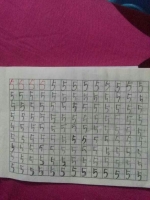 5 5 5 5 5 5 5 5 5 5 5
5 5 5 5 5 5 5 5 5 5 5
5 5 5 5 5 5 5 5 5 5 5
5 5 5 5 5 5 5 5 5 5 5
5 5 5 5 5 5 5 5 5 5 5
5 5 5 5 5 5 5 5 5 5 5
5 5 5 5 5 5 5 5 5 5 5
5 5 5 5 5 5 5 5 5 5 5
5 5 5 5 5 5 5 5 5 5 5